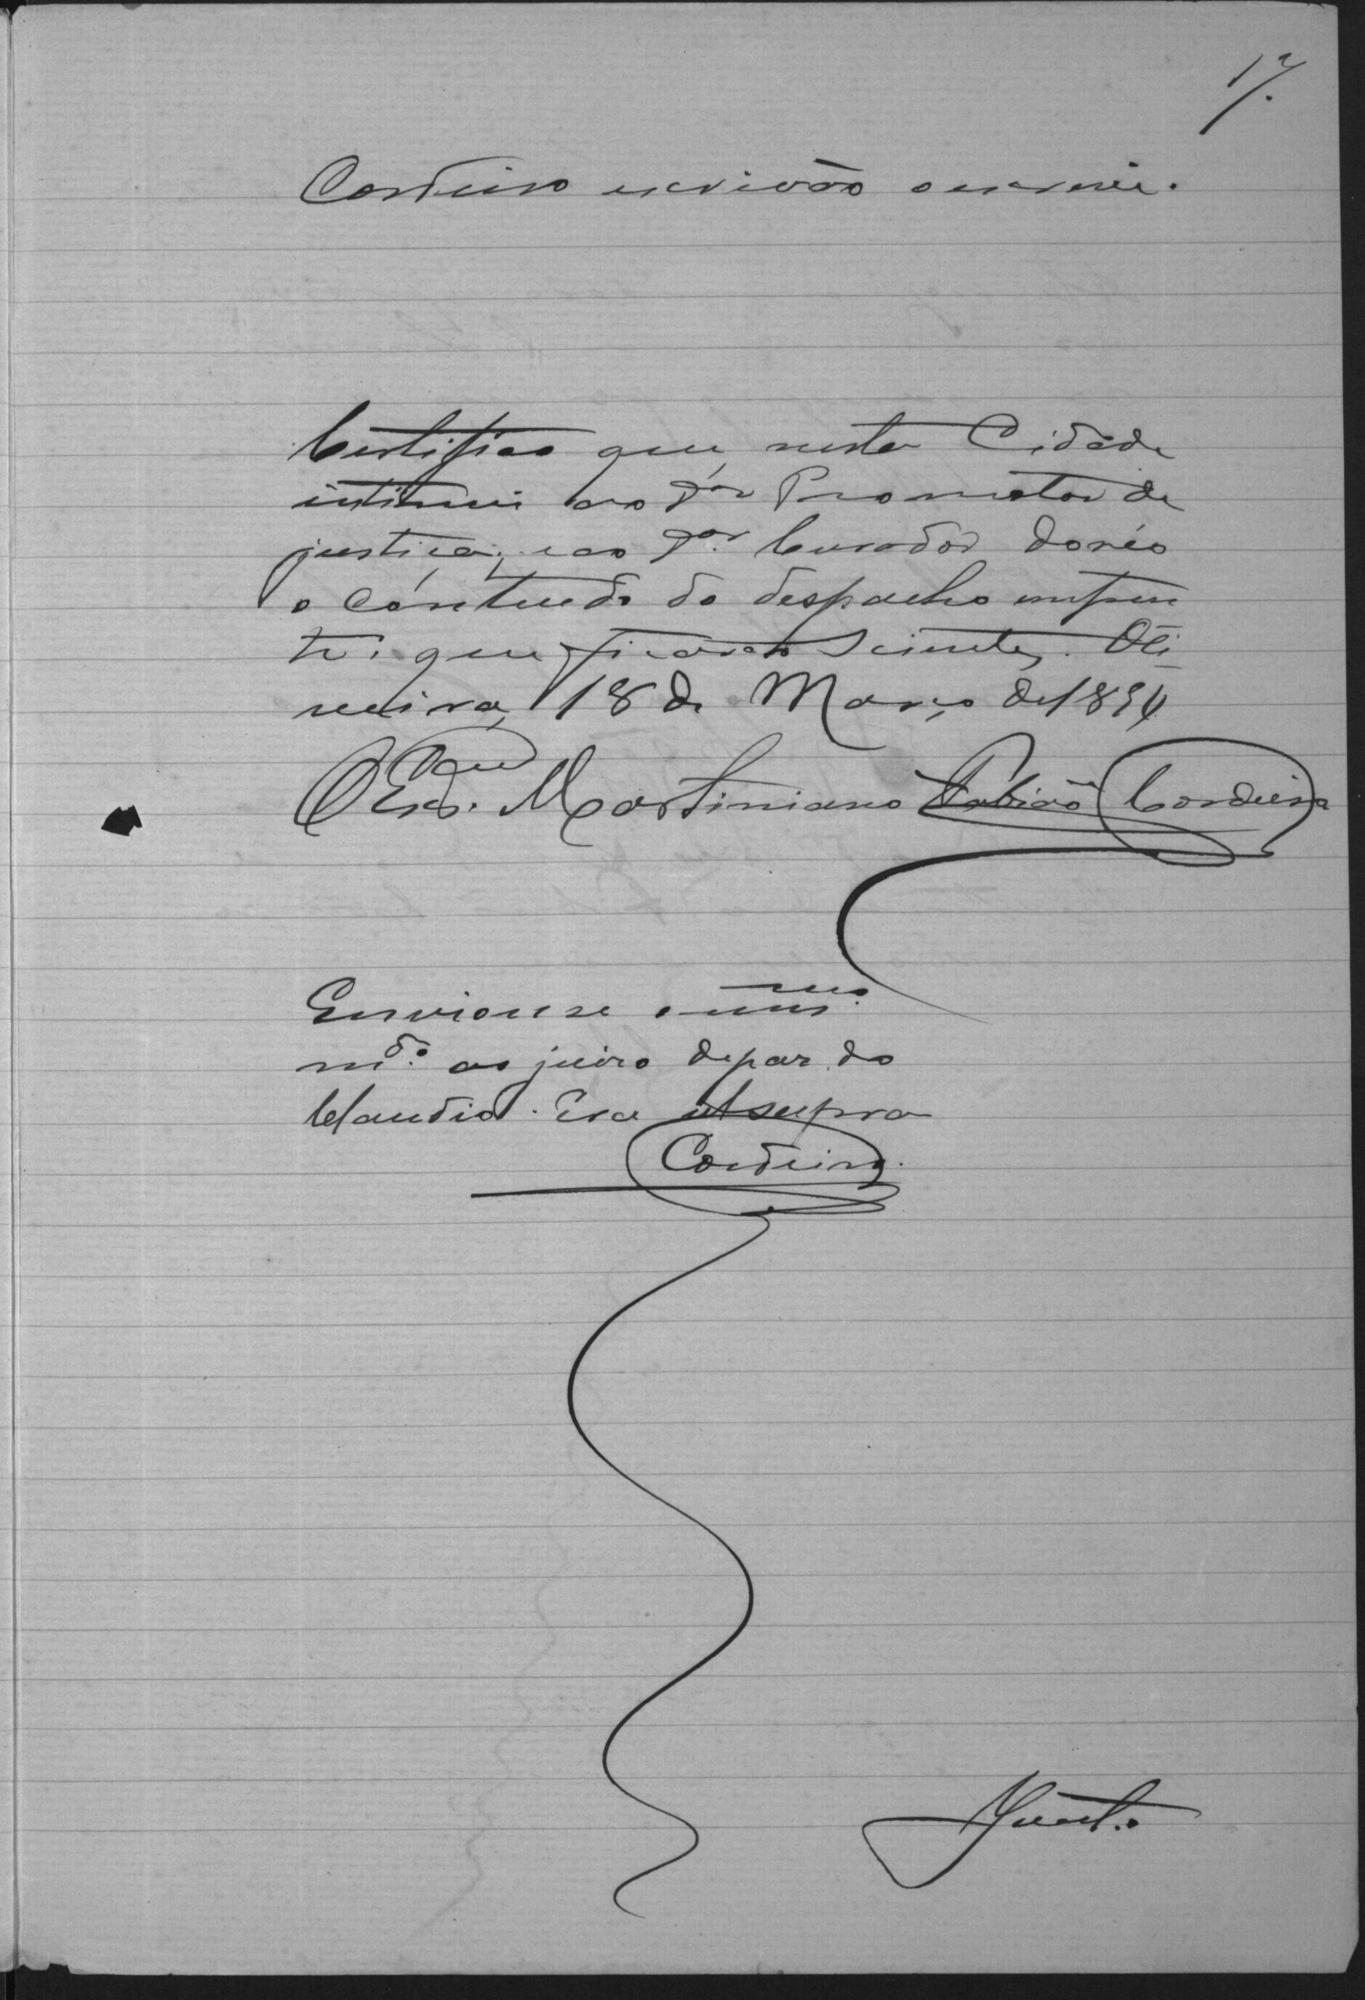 17.
Cordeiro escrivão o escrevi.
Certifico que nesta Cidade
intimei ao Dor Promotor de
justiça, e ao Dor Curador do réo
o conteudo do despacho
que ficarão scientes. Oli
veira, 18 de Março de 1894
O Escam. Martiniano Fabião Cordeiro
Enviouse o
mdo. ao juizo de paz do
Claudio. Era ut supra
Cordeiro.
Junto